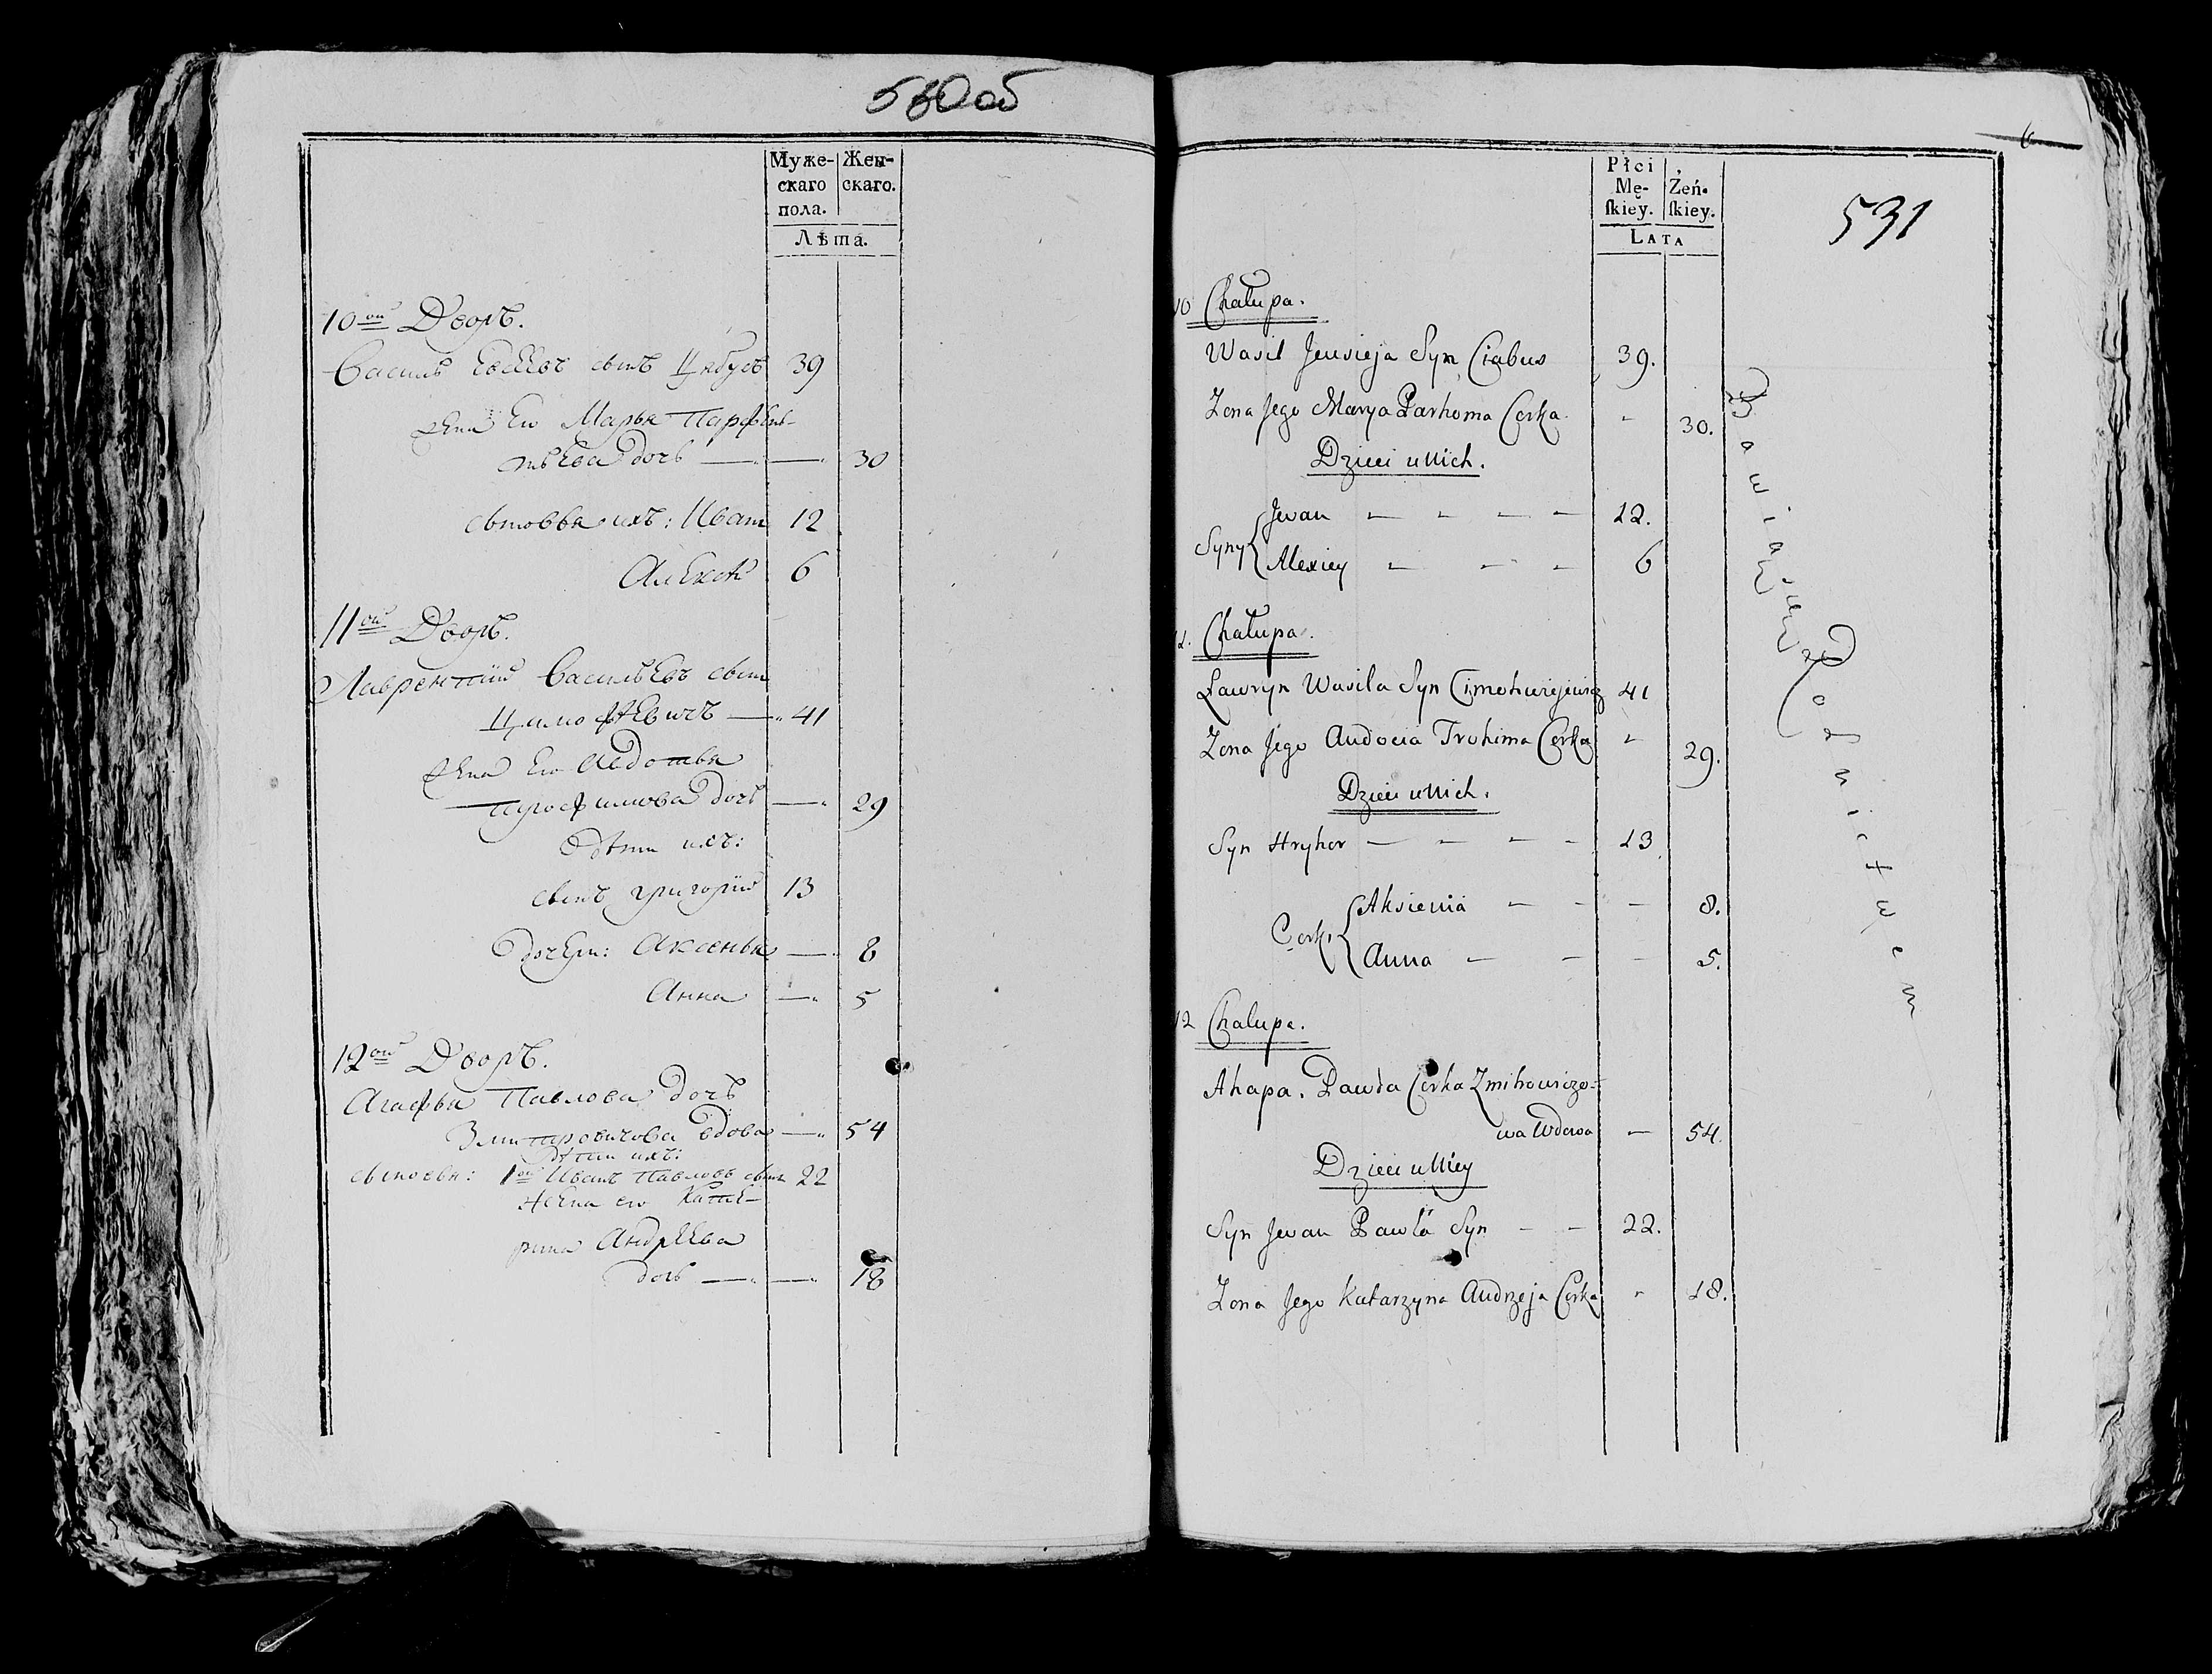 530об
Муже-
скаго
пола.
Жен-
скаго.
Лѣта.
10ой Дворъ.
Василь Евсеевъ сынъ Цябусъ 39
Жена Его Марья Парфень-
тьева дочь — — 30
сыновья ихъ: Иванъ 12
Алексей 6
11ой Дворъ.
Лаврентий Васильевъ сынъ
Цимофеевичъ — 41
Жена Его Авдотья
Трофимова дочь — 29
Дѣти ихъ:
сынъ Григорий 13
Дочери: Аксенья — 8
Анна — 5
12ой Дворъ.
Агафья Павлова дочь
Змитровичова вдова — 54
Дѣти ихъ:
сыновья: 1ой Иванъ Павловъ сынъ 22
Жена его Кате-
рина Андреева
дочь — — 18
6
531
Płci
Mę-
ſkiey.
Żeń-
ſkiey.
Lata
10 Chałupa.
Wasil Jeusieja Syn Ciabus 39.
Zona Jego Marya Parhoma Corka - 30.
Dzieci u Nich.
Syny
Jwan — — — — 12.
Alexiey — — — 6
Chałupa.
Ławryn Wasila Syn Cimohwiejewicz 41
Zona Jego Audocia Trohima Corka - 29.
Dzieci u Nich.
Syn Hryhor — — — — 13
Corki
Aksienia — — — 8.
Anna — — — 5.
12 Chalupa.
Ahapa. Pawła Corka Zmitrowiczo-
wa Wdowa — 54.
Dzieci u Niey
Syn Jwan Pawła Syn — — 22.
Zona Jego Katarzyna Andrzeja Corka - 18.